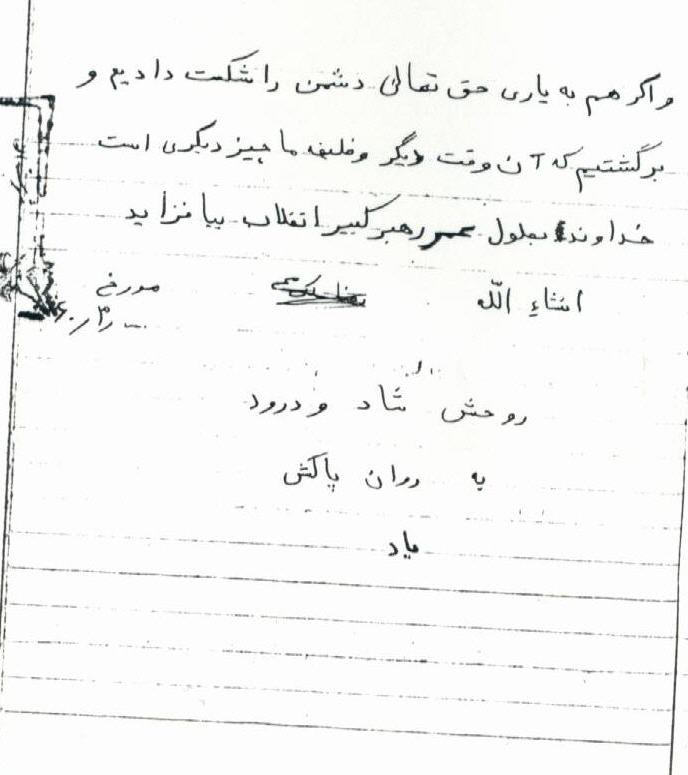 و اگر هم به یاری حق تعالی دشمن را شکست دادیم و
برگشتیم که آن وقت دیگر وظیفه ما چیز دیگری است
خداوند بطول عمر رهبر کبیر انقلاب بیافزاید
انشاء الله مورخ
روحش شاد و درود
به روان پاکش
باد